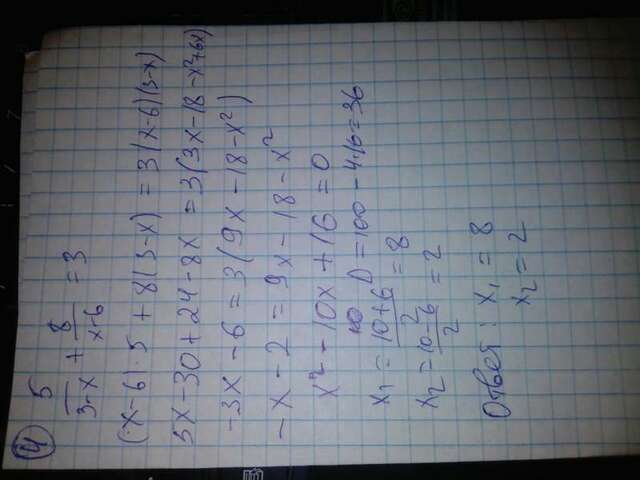 4
5/(3-x) + 8/(x-6) = 3
(x-6)·5 + 8(3-x) = 3(x-6)(3-x)
5x-30+24-8x = 3(3x-18-x²+6x)
-3x-6 = 3(9x-18-x²)
-x-2 = 9x-18-x²
x²-10x+16=0
D=100-4·16=36
x₁ = (10+6)/2 = 8
x₂ = (10-6)/2 = 2
Ответ: x₁ = 8
x₂ = 2